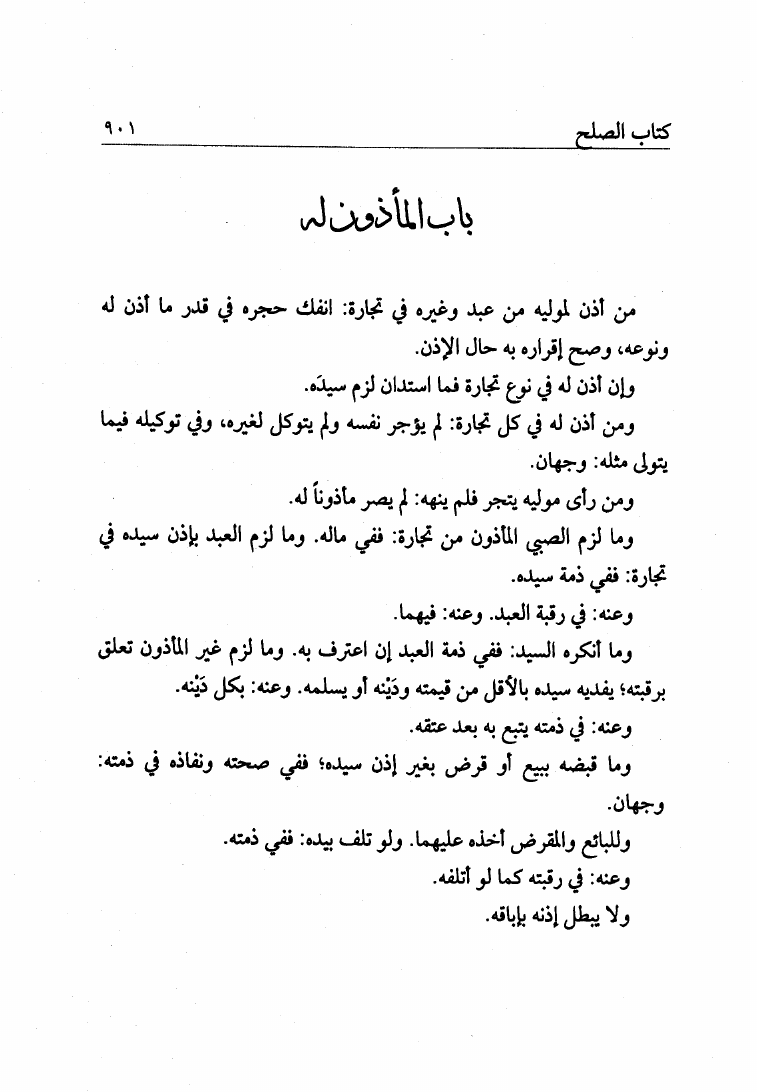 كتاب الصلح ٩٠١
باب المأذون له
من أذن لموليه من عبد وغيره في تجارة: انفك حجره في قدر ما أذن له
ونوعه، وصح إقراره به حال الإذن.
وإن أذن له في نوع تجارة فما استدان لزم سيدَه.
ومن أذن له في كل تجارة: لم يؤجر نفسه ولم يتوكل لغيره، وفي توكيله فيما
يتولى مثله: وجهان.
ومن رأى موليه يتجر فلم ينهه: لم يصر مأذوناً له.
وما لزم الصبي المأذون من تجارة: ففي ماله. وما لزم العبد بإذن سيده في
تجارة: ففي ذمة سيده.
وعنه: في رقبة العبد. وعنه: فيهما.
وما أنكره السيد: ففي ذمة العبد إن اعترف به. وما لزم غير المأذون تعلق
برقبته؛ يفديه سيده بالأقل من قيمته ودَيْنه أو يسلمه. وعنه: بكل دَيْنه.
وعنه: في ذمته يتبع به بعد عتقه.
وما قبضه ببيع أو قرض بغير إذن سيده؛ ففي صحته ونفاذه في ذمته:
وجهان.
وللبائع والمقرض أخذه عليهما. ولو تلف بيده: ففي ذمته.
وعنه: في رقبته كما لو أتلفه.
ولا يبطل إذنه بإباقه.